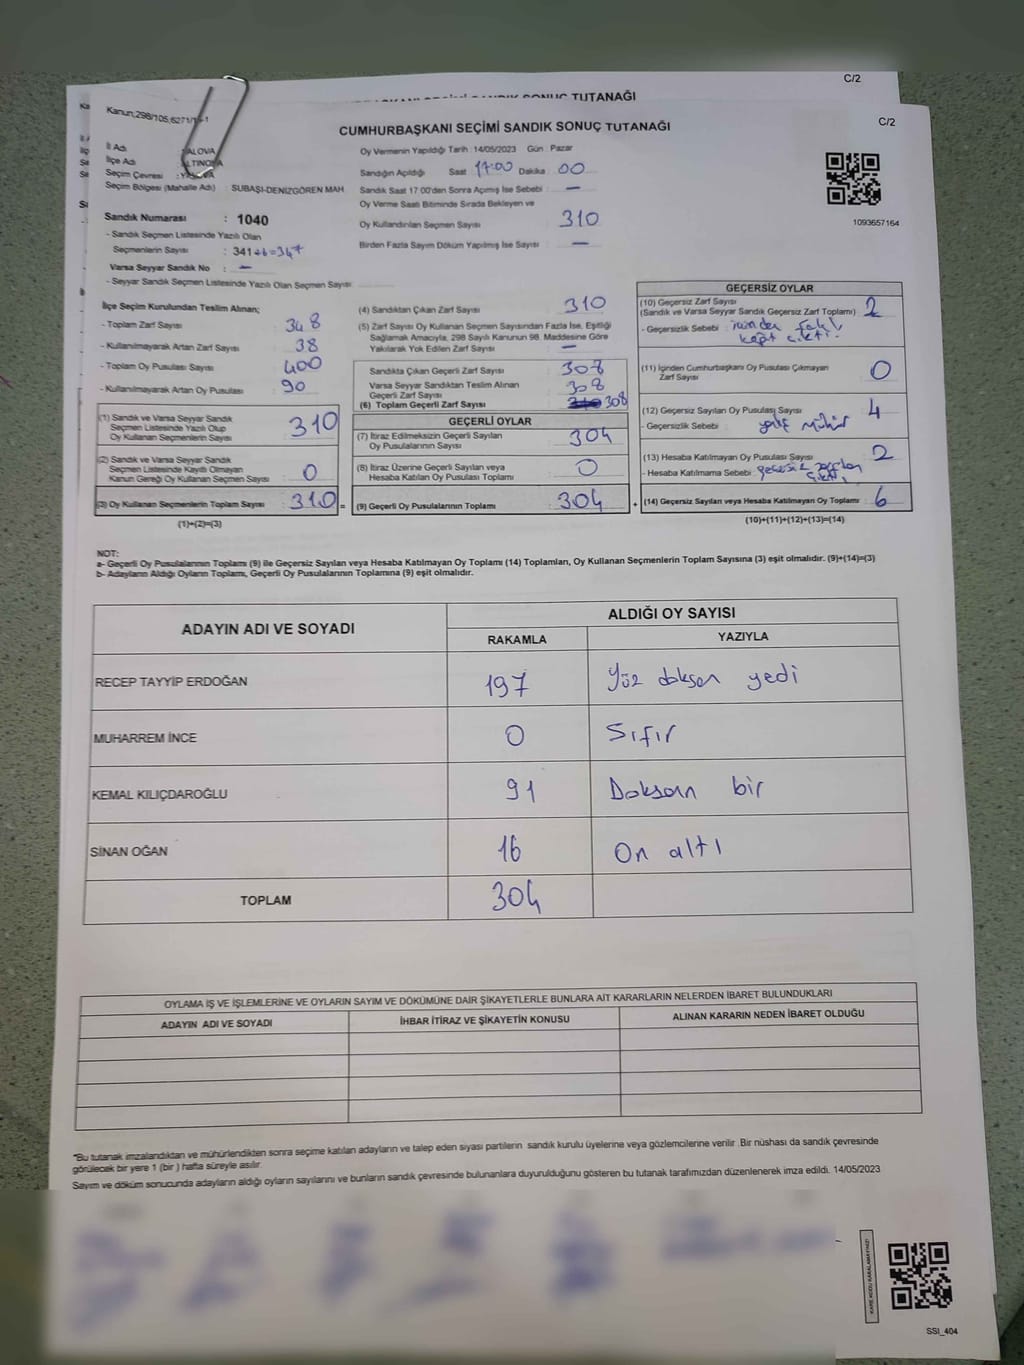 C/2
SONUÇ TUTANAĞI
Kanun;298/105,6271/
C/2
CUMHURBAŞKANI SEÇİMİ SANDIK SONUÇ TUTANAĞI
İl Adı : YALOVA
İlçe Adı : ALTINOVA
Seçim Çevresi : YALOVA
Seçim Bölgesi (Mahalle Adı) : SUBAŞI-DENİZGÖREN MAH.
Sandık Numarası : 1040
- Sandık Seçmen Listesinde Yazılı Olan
Seçmenlerin Sayısı : 341+6=347
Varsa Seyyar Sandık No : -
- Seyyar Sandık Seçmen Listesinde Yazılı Olan Seçmen Sayısı
Oy Vermenin Yapıldığı Tarih : 14/05/2023 Gün : Pazar
Sandığın Açıldığı Saat 17:00 Dakika : 00
Sandık Saat 17:00'den Sonra Açılmış İse Sebebi : -
Oy Verme Saati Bitiminde Sırada Bekleyen ve
Oy Kullandırılan Seçmen Sayısı : 310
Birden Fazla Sayım Döküm Yapılmış İse Sayısı : -
1093657164
İlçe Seçim Kurulundan Teslim Alınan;
- Toplam Zarf Sayısı : 348
- Kullanılmayarak Artan Zarf Sayısı : 38
- Toplam Oy Pusulası Sayısı : 400
- Kullanılmayarak Artan Oy Pusulası : 90
(1) Sandık ve Varsa Seyyar Sandık
Seçmen Listesinde Yazılı Olup
Oy Kullanan Seçmenlerin Sayısı : 310
(2) Sandık ve Varsa Seyyar Sandık
Seçmen Listesinde Kayıtlı Olmayan
Kanun Gereği Oy Kullanan Seçmen Sayısı : 0
(3) Oy Kullanan Seçmenlerin Toplam Sayısı : 310 =
(1)+(2)=(3)
(4) Sandıktan Çıkan Zarf Sayısı : 310
(5) Zarf Sayısı Oy Kullanan Seçmen Sayısından Fazla İse, Eşitliği
Sağlamak Amacıyla, 298 Sayılı Kanunun 98. Maddesine Göre
Yakılarak Yok Edilen Zarf Sayısı : -
Sandıkta Çıkan Geçerli Zarf Sayısı : 308
Varsa Seyyar Sandıktan Teslim Alınan
Geçerli Zarf Sayısı : 308
(6) Toplam Geçerli Zarf Sayısı : 310 308
GEÇERLİ OYLAR
(7) İtiraz Edilmeksizin Geçerli Sayılan
Oy Pusulalarının Sayısı : 304
(8) İtiraz Üzerine Geçerli Sayılan veya
Hesaba Katılan Oy Pusulası Toplamı : 0
(9) Geçerli Oy Pusulalarının Toplamı : 304 +
GEÇERSİZ OYLAR
(10) Geçersiz Zarf Sayısı : 2
(Sandık ve Varsa Seyyar Sandık Geçersiz Zarf Toplamı)
- Geçersizlik Sebebi : içinden
kağıt çıktı.
(11) İçinden Cumhurbaşkanı Oy Pusulası Çıkmayan
Zarf Sayısı : 0
(12) Geçersiz Sayılan Oy Pusulası Sayısı : 4
- Geçersizlik Sebebi : mühür
(13) Hesaba Katılmayan Oy Pusulası Sayısı : 2
- Hesaba Katılmama Sebebi : geçersiz
(14) Geçersiz Sayılan veya Hesaba Katılmayan Oy Toplamı : 6
(10)+(11)+(12)+(13)=(14)
NOT:
a- Geçerli Oy Pusulalarının Toplamı (9) ile Geçersiz Sayılan veya Hesaba Katılmayan Oy Toplamı (14) Toplamları, Oy Kullanan Seçmenlerin Toplam Sayısına (3) eşit olmalıdır. (9)+(14)=(3)
b- Adayların Aldığı Oyların Toplamı, Geçerli Oy Pusulalarının Toplamına (9) eşit olmalıdır.
ADAYIN ADI VE SOYADI
ALDIĞI OY SAYISI
RAKAMLA YAZIYLA
RECEP TAYYİP ERDOĞAN 197 Yüz doksan yedi
MUHARREM İNCE 0 Sıfır
KEMAL KILIÇDAROĞLU 91 Doksan bir
SİNAN OĞAN 16 On altı
TOPLAM 304
OYLAMA İŞ VE İŞLEMLERİNE VE OYLARIN SAYIM VE DÖKÜMÜNE DAİR ŞİKAYETLERLE BUNLARA AİT KARARLARIN NELERDEN İBARET BULUNDUKLARI
ADAYIN ADI VE SOYADI İHBAR İTİRAZ VE ŞİKAYETİN KONUSU ALINAN KARARIN NEDEN İBARET OLDUĞU
*Bu tutanak imzalandıktan ve mühürlendikten sonra seçime katılan adayların ve talep eden siyasi partilerin sandık kurulu üyelerine veya gözlemcilerine verilir. Bir nüshası da sandık çevresinde
görülecek bir yere 1 (bir) hafta süreyle asılır.
Sayım ve döküm sonucunda adayların aldığı oyların sayılarını ve bunların sandık çevresinde bulunanlara duyurulduğunu gösteren bu tutanak tarafımızdan düzenlenerek imza edildi. 14/05/2023
KARE KODU KARALAMAYINIZ!
SSI_404